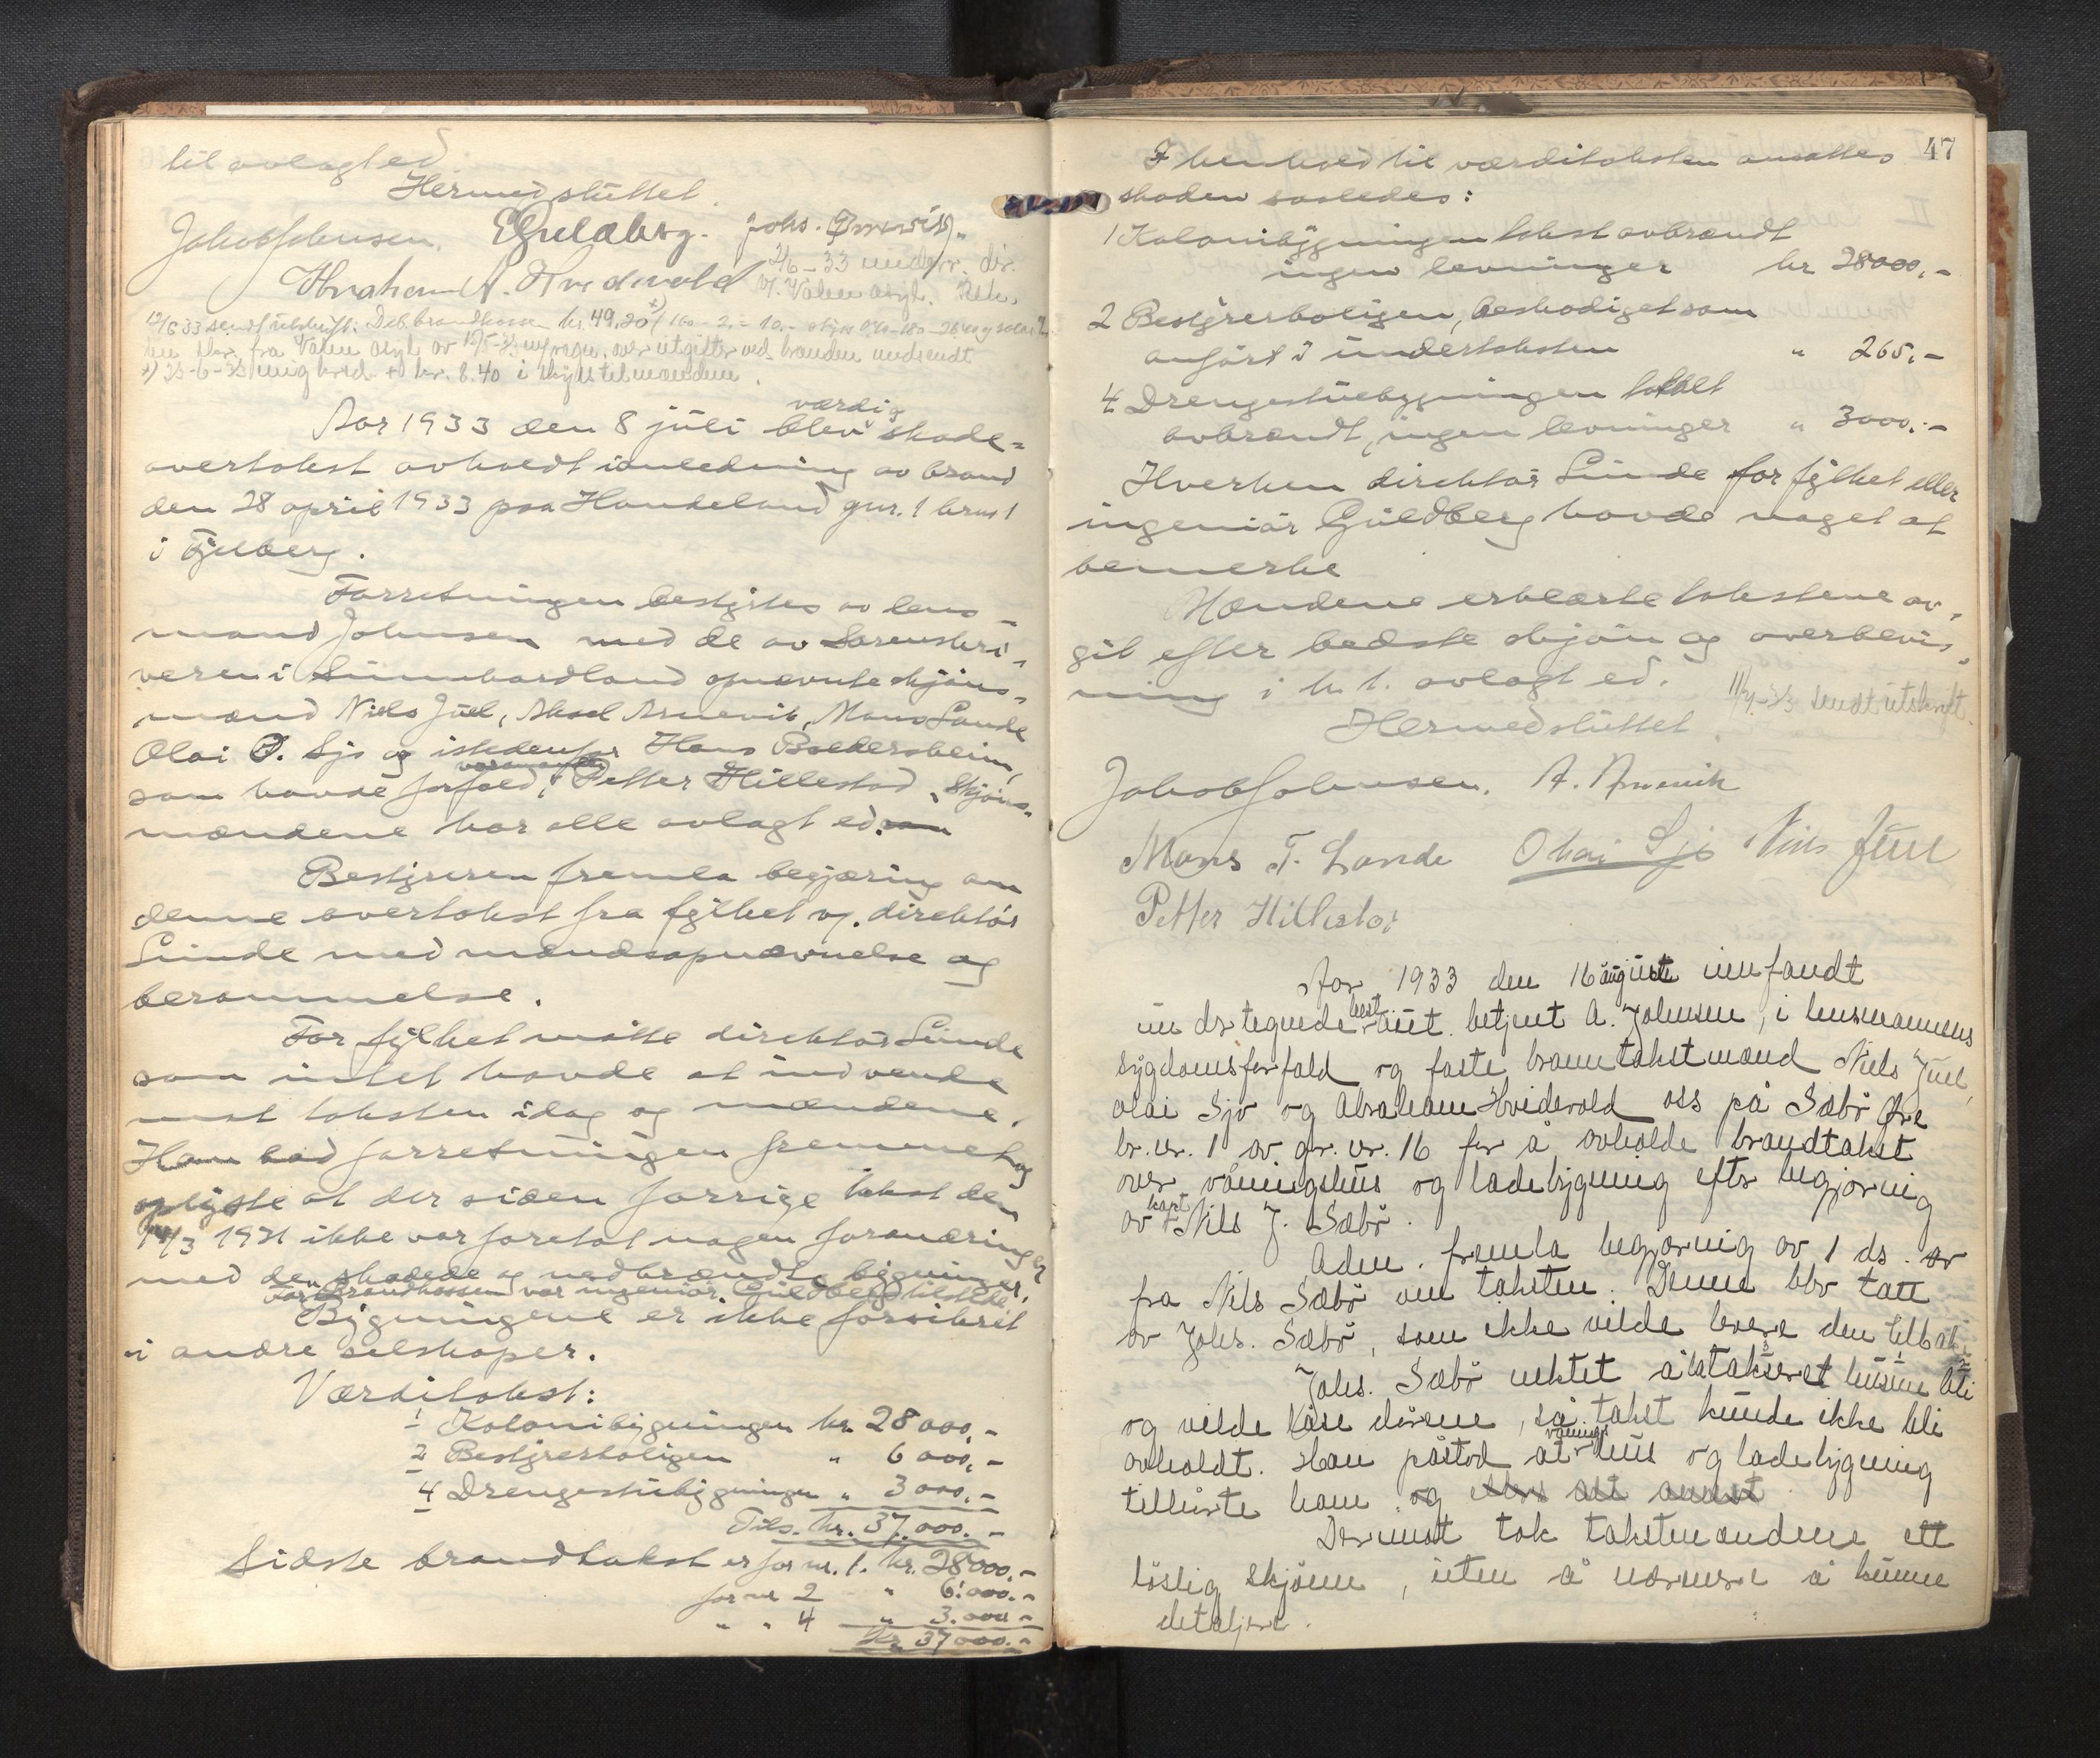 til avlagt ed
Hermed sluttet.
Jakob Johnsen. EGuldberg. Johs. Arnevik.
Abraham A. Hvidevold
2/6-33 underr. dir.
v. Valen asyl.
12/6 33 sendt utskrift. Deb. brandkassen kr. 49,20
fra Valen asyl av utgifter ved branden
i skyss til mændene.
Aar 1933 den 8 juli blev værdi og skade-
overtakst avholdt i anledning av brand
den 28 april 1933 paa Handeland gnr. 1 brnr 1
i Fjelberg.
Forretningen bestyrtes av lens-
mand Johnsen med de av Sorenskri-
veren i Sunnhordland opnævnte skjøns-
mænd Niels Juel, Aksel Arnevik, Mons Lande
Olai O. Sjo og istedenfor Hans Baldersheim,
som havde forfald, varamanden Petter Hillestad. Skjøns-
mændene har alle avlagt ed.
Bestyreren fremla begjæring om
denne overtakst fra fylket v. direktør
Lunde med mændsopnævnelse og
berammelse.
For fylket møtte direktør Lunde
som intet havde at indvende
mot taksten idag og mændene.
Han bad forretningen fremmet og
oplyste at der siden forrige takst den
14/3 1921 ikke var foretat nogen forandringer
med de skadede og nedbrændte bygninger.
For Brandkassen var ingeniør Guldberg tilstede.
Bygningene er ikke forsikret
i andre selskaper.
Værditakst:
1 Kolonibygningen kr. 28000,-
2 Bestyrerboligen " 6000,-
4 Drengestubygningen " 3000,-
Tils. kr. 37.000.-
Sidste brandtakst er for nr. 1. kr. 28000.-
for nr 2 " 6.000.-
" " 4 " 3.000-
kr 37000.-
47
I henhold til værditaksten ansattes
skaden saaledes:
1 Kolonibygningen takst avbrændt
ingen levninger kr 28000,-
2 Bestyrerboligen, beskadiget som
anført i undertaksten " 265,-
4 Drengestuebygningen totalt
avbrændt, ingen levninger " 3000.-
Hverken direktør Lunde for fylket eller
ingeniør Guldberg havde noget at
bemerke
Mændene erklærte takstene av-
git efter bedste skjøn og overbevis-
ning i h. t. avlagt ed.
11/7-33 sendt utskrift.
Hermed sluttet.
Jakob Johnsen. A. Arnevik
Mons T. Lande Olai Sjo Niels Juel
Petter Hillestad
Aar 1933 den 16 august innfandt
undertegnede best. aut. betjent A. Johnsen, i lensmannens
sygdomsforfald og faste branntakstmænd Niels Juel,
Olai Sjo og Abraham Hvidevold oss på Sæbø Øvre
br. nr. 1 av gr. nr. 16 for å avholde brandtakst
over våningshus og ladebygning efter begjæring
av kapt. Nils J. Sæbø.
Adm. fremla begjæring av 1 ds. av
fra Nils Sæbø om taksten. Denne blev tatt
av Johs. Sæbø, som ikke vilde levere den tilbake.
Johs. Sæbø nektet å taksere husene
og vilde låse dørene, så takst kunde ikke bli
avholdt. Han påstod at våningshus og ladebygning
tilhørte ham. og ellers alt annet
Derimot tok takstmændene ett
løslig skjønn, uten å nærmere å kunne
detaljere.